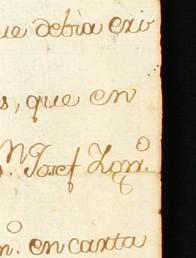 ue debia exi
s, que en
n. Josef Zon.
n.º en carta